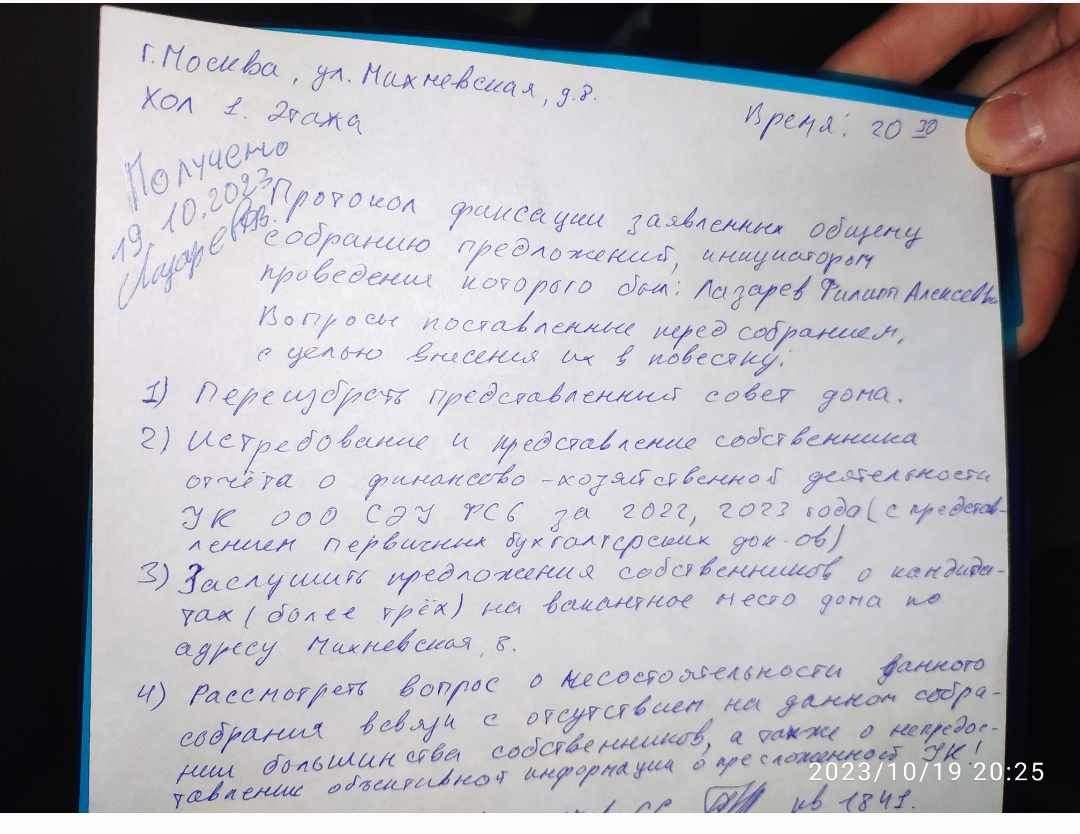 г. Москва, ул. Михневская, д.8.
Хол 1. Этажа
Время: 20 30
Получено
19 10.2023
Лазарев
Протокол фиксации заявленных общему
собранию предложений, инициатором
проведения которого был: Лазарев Филипп Алексеевич
Вопросы поставленные перед собранием,
с целью внесения их в повестку:
1) Переизбрать представленный совет дома.
2) Истребование и представление собственника
отчёта о финансово-хозяйственной деятельности
УК ООО СЭУ ФС6 за 2022, 2023 года (с представ-
лением первичных бухгалтерских док-ов)
3) Заслушить предложения собственников о кандида-
тах (более трёх) на вакантное место дома по
адресу Михневская, 8.
4) Рассмотреть вопрос о несостоятельности данного
собрания всвязи с отсутствием на данном собра-
нии большинства собственников, а также о непредос-
тавлении объективной информации о УК!
2023/10/19 20:25
кв 1841.